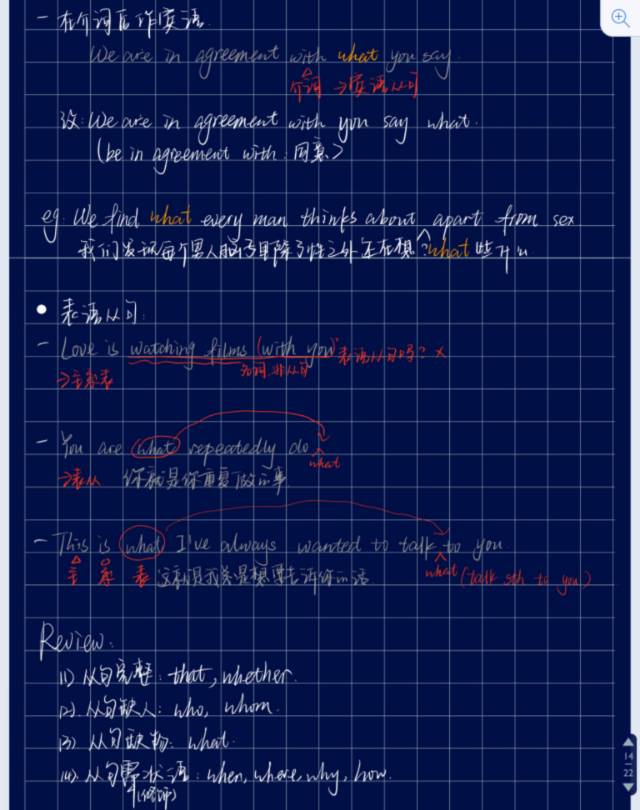 - 在介词后作宾语.
We are in agreement with what you say.
介词 → 宾语从句
改: We are in agreement with you say what.
(be in agreement with: 同意)
eg. We find what every man thinks about apart from sex
我们发现每个男人脑子里除了性之外还在想 what 些什么
• 表语从句:
- Love is watching films (with you) 表语从句吗? ×
→主系表 非从句
- You are what repeatedly do what
→表从 你就是你重复做的事
- This is what I've always wanted to talk to you
主 系 表 这就是我总是想要告诉你的话 what (talk sth to you)
Review:
(1) 从句完整: that, whether.
(2) 从句缺人: who, whom.
(3) 从句缺物: what.
(4) 从句需状语: when, where, why, how.
(修饰)
14
22